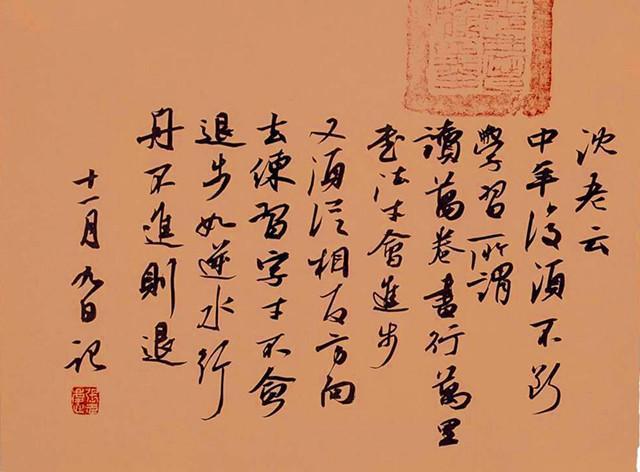 沈老云
中年後須不斷
學習所謂
讀萬卷書行萬里
書法才會進步
又須從相反方向
去練習字才不會
退步如逆水行
舟不進則退
十一月九日記